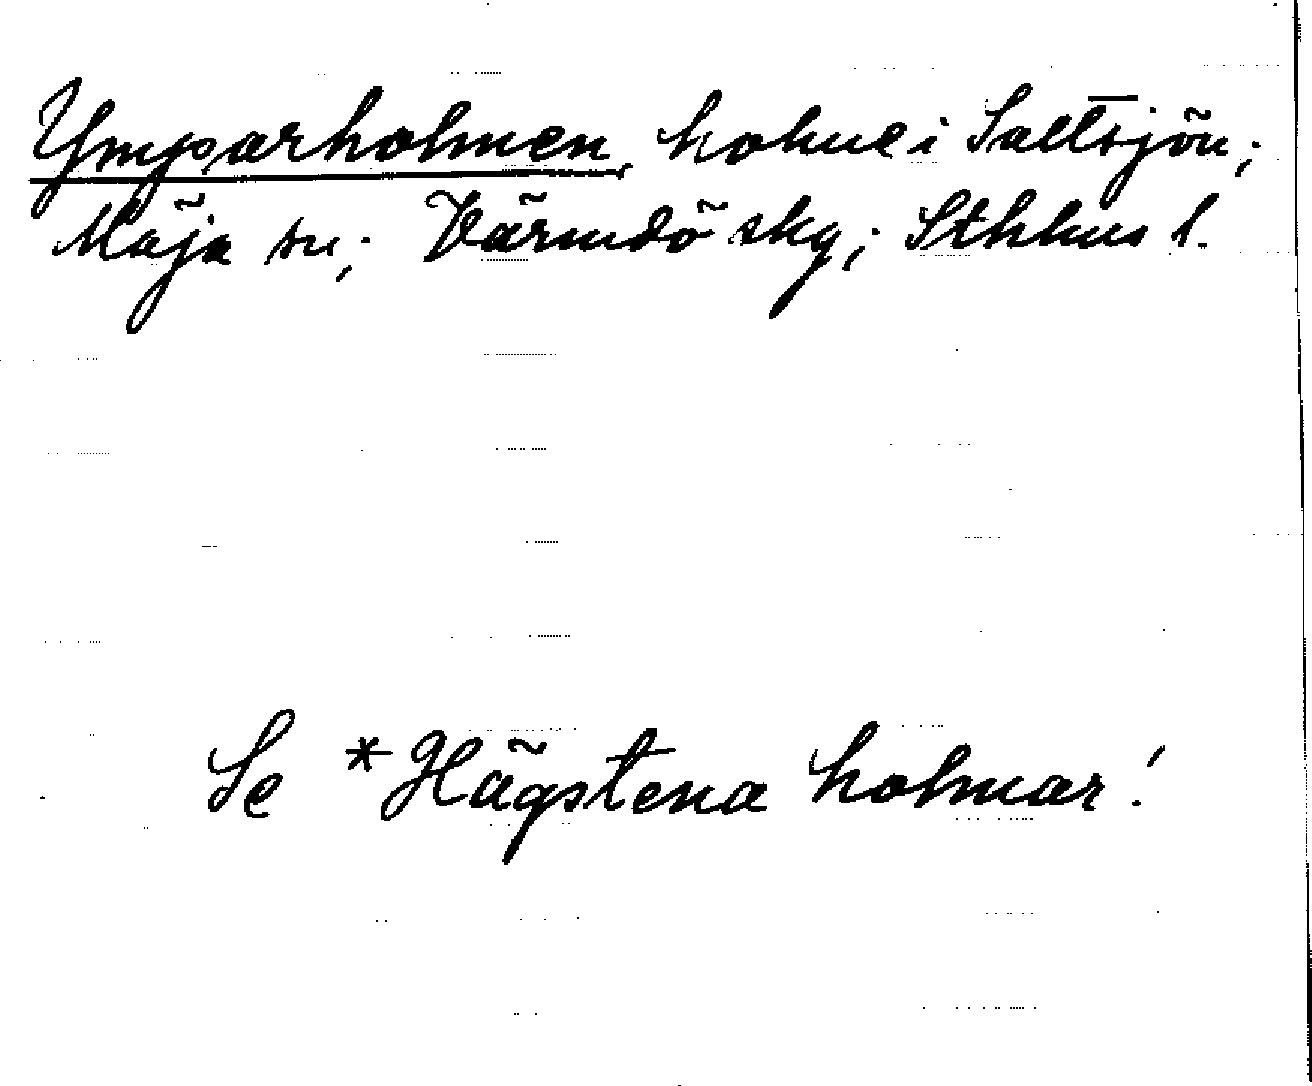 Ymparholmen, holme i Saltsjön;
Möja sn; Värmdö skg; Sthlms l.
Se *Högstena holmar!